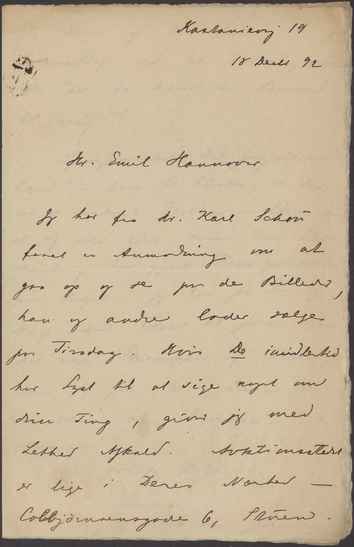 Kastanievej 19
18 Decbr 92
Hr. Emil Hannover
Jeg har fra Hr. Karl Schou
faaet en Anmodning om at
gaa op og se paa de Billeder,
han og andre lader sælge
paa Tirsdag. Hvis De imidlertid
har Lyst til at sige noget om
disse Ting, giver jeg med
Lethed Afkald. Auktionsstedet
er lige i Deres Nærhed —
Colbjørnsensgade 6, Stuen.